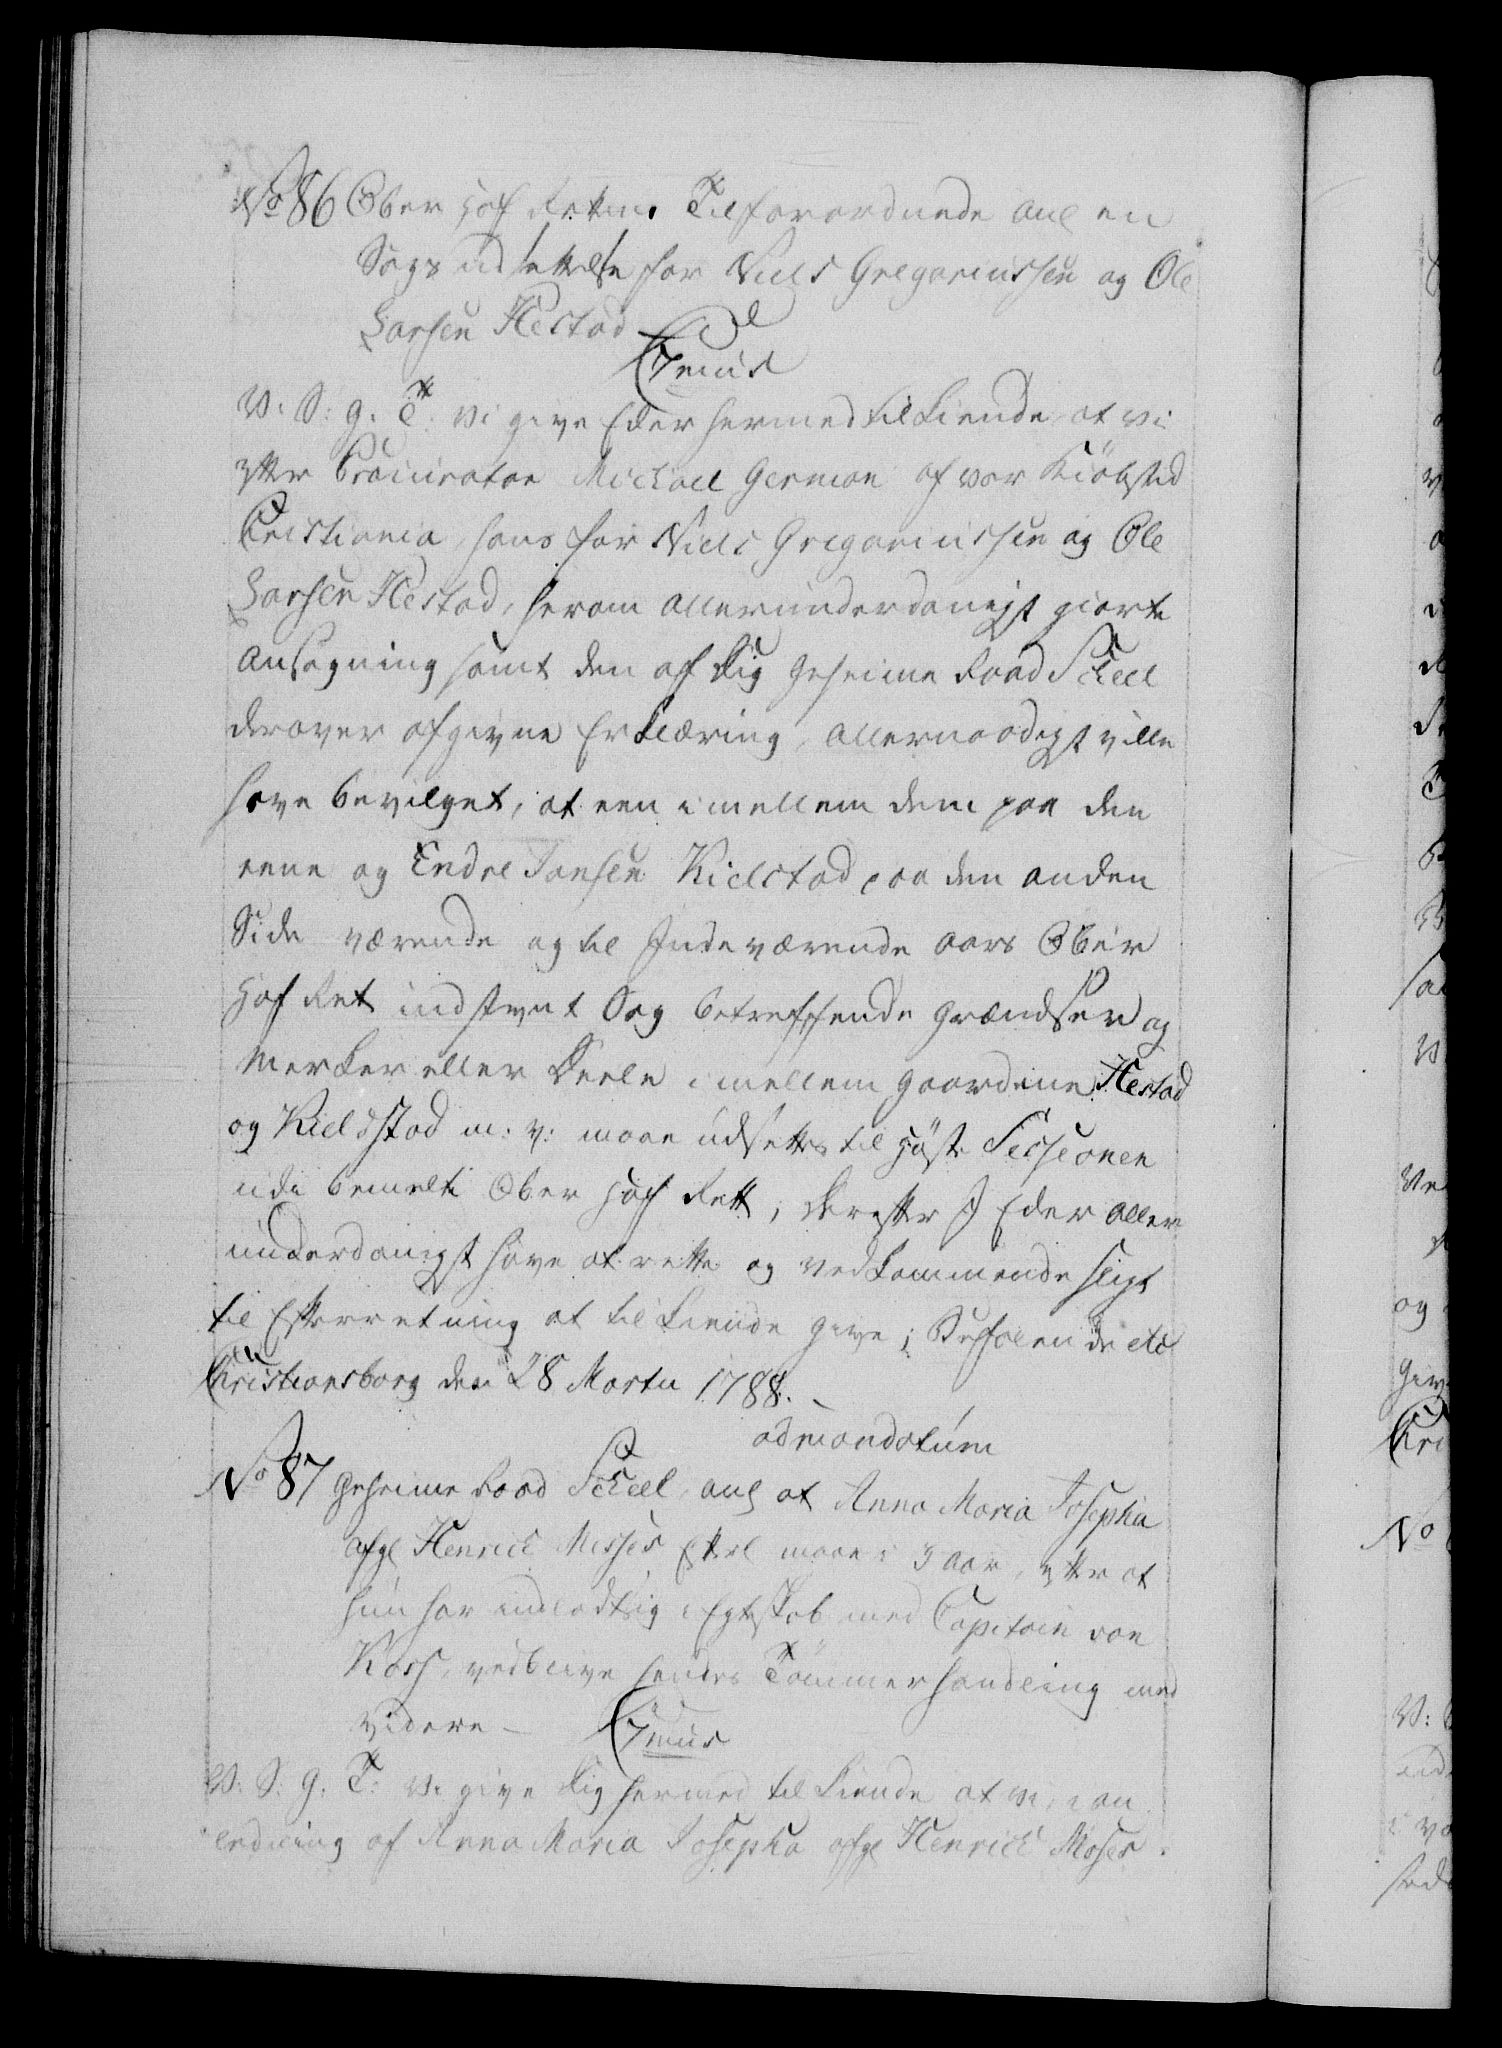 No 86 Ober Hof Rettens Tilforordnede anl en
Sags udsettelse for Niels Gregoriussen og Ole
Larsen Hestad
C7mus
V. S: G. T: Vi give Eder hermed tilkiende, at vi
efter Procurator Michael German af vor Kiöbsted
Christiania, hans for Niels Gregoriussen og Ole
Larsen Hestad, herom allerunderdanigst giorte
Ansøgning samt den af Dig Geheime Raad Scheel
derover afgivne Erklæring, allernaadigst ville
have bevilget, at een imellem dem paa den
eene og Endre Jansen Kielstad paa den anden
Side værende og til Indeværende Aars Ober
Hof Ret indstevnt Sag betreffende Grændser og
Merker eller Deele imellem Gaardene Hestad
og Kieldstad m: v: maae udsettes til Höst Sessionen
udi bemelte Ober Hof Rett; Derefter I Eder aller
underdanigst have at rette og vedkommende sligt
til Efterretning at tilkiende give; Befalende etc
Christiansborg den 28 Martii 1788.
ad mandatum
No 87 Geheime Raad Scheel, anl at Anna Maria Josepha
afgl Henrich Moses Efterl maae i 3 Aar, efter at
hun har indladt sig i Egteskab med Capitain von
Koss, vedblive hendes Tømmerhandling med
videre –
C7mus
V. S: G. T: Vi give Dig hermed tilkiende at vi, i an
ledning af Anna Maria Josepha afgl Henrich Moses